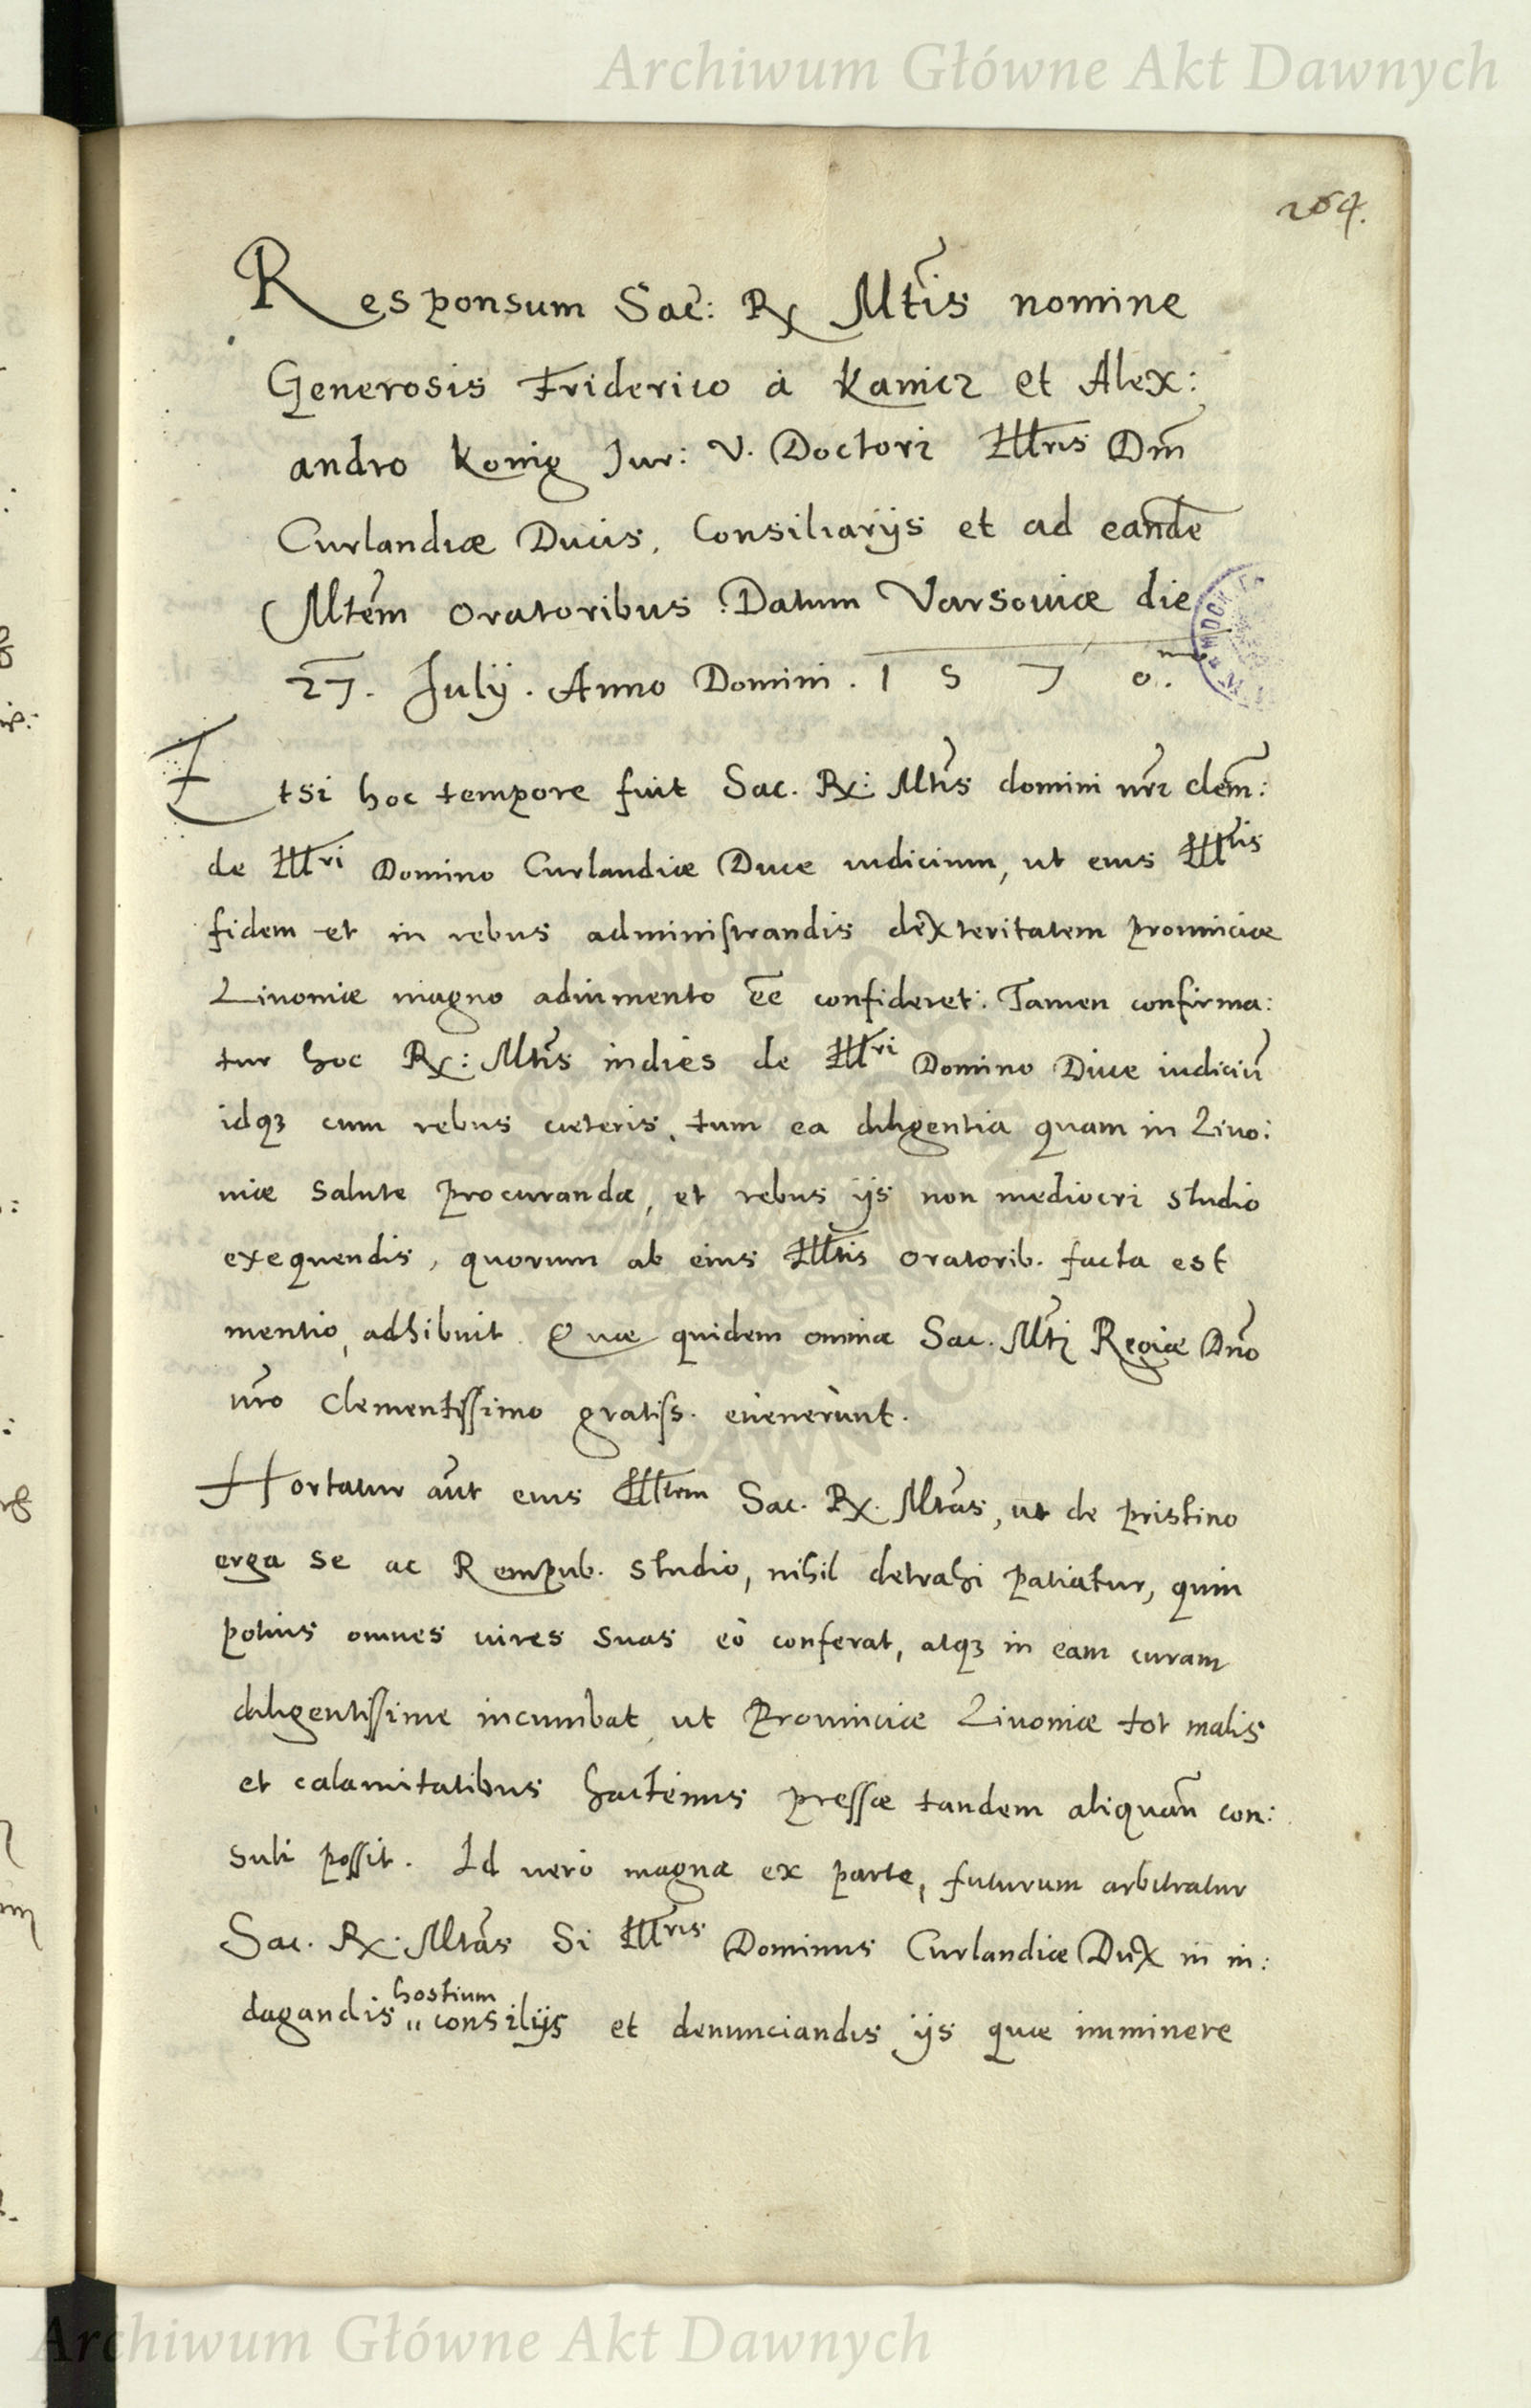 Archiwum Główne Akt Dawnych
264.
Responsum Sac: Rx Mtis nomine
Generosis Friderico à Kanicz et Alex:
andro Konig Jur: V. Doctori Illris Dm̃
Curlandiæ Ducis, Consiliarijs et ad eandẽ
Mtẽm oratoribus. Datum Varsouiæ die
27. Julij. Anno Domini. 1 5 7 0.mo
Etsi hoc tempore fuit Sac. Rx: Mtĩs domini nr̃i clem̃:
de Illri Domino Curlandiæ Duce iudicium, ut eius Illtis
fidem et in rebus administrandis dexteritatem prouinciæ
Liuoniæ magno adiumento eẽ confideret: Tamen confirma:
tur hoc Rx: Mtĩs indies de Illri Domino Duce iudiciũ
idq₃ cum rebus cæteris, tum ea diligentia quam in Liuo:
niæ salute procuranda, et rebus ijs non mediocri studio
exequendis, quorum ab eius Illtis oratorib. facta est
mentio, adhibuit. Quæ quidem omnia Sac. Mtĩ Regiæ Dño
nr̃o Clementissimo gratiss. euenerunt.
Hortatur aũt eius Illtem Sac. Rx. Mtãs, ut de pristino
erga se ac Rempub. studio, nihil detrahi patiatur, quin
potius omnes uires suas eò conferat, atq₃ in eam curam
diligentissime incumbat, ut Prouinciæ Liuoniæ tot malis
et calamitatibus hactenus pressæ tandem aliquañ con:
suli possit. Id uerò magna ex parte, futurum arbitratur
Sac. Rx. Mtãs Si Illris Dominus Curlandiæ Dux in in:
dagandis hostium consilijs et denunciandis ijs quæ imminere
Archiwum Główne Akt Dawnych